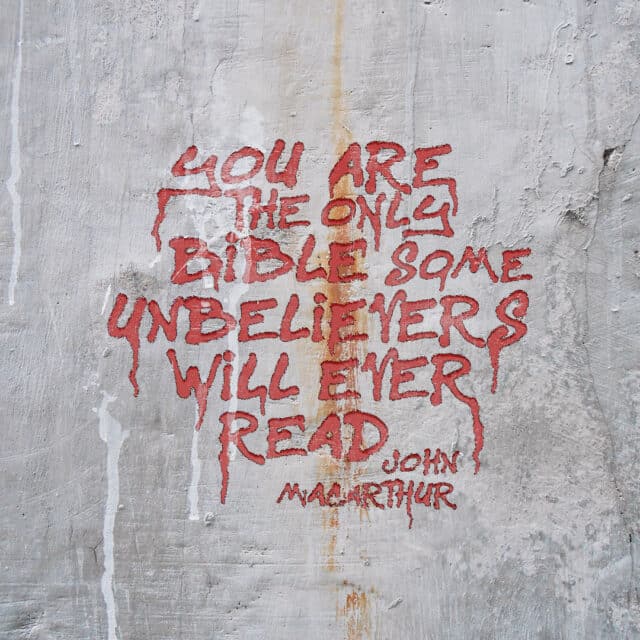 YOU ARE
THE ONLY
BIBLE SOME
UNBELIEVERS
WILL EVER
READ
JOHN
MACARTHUR